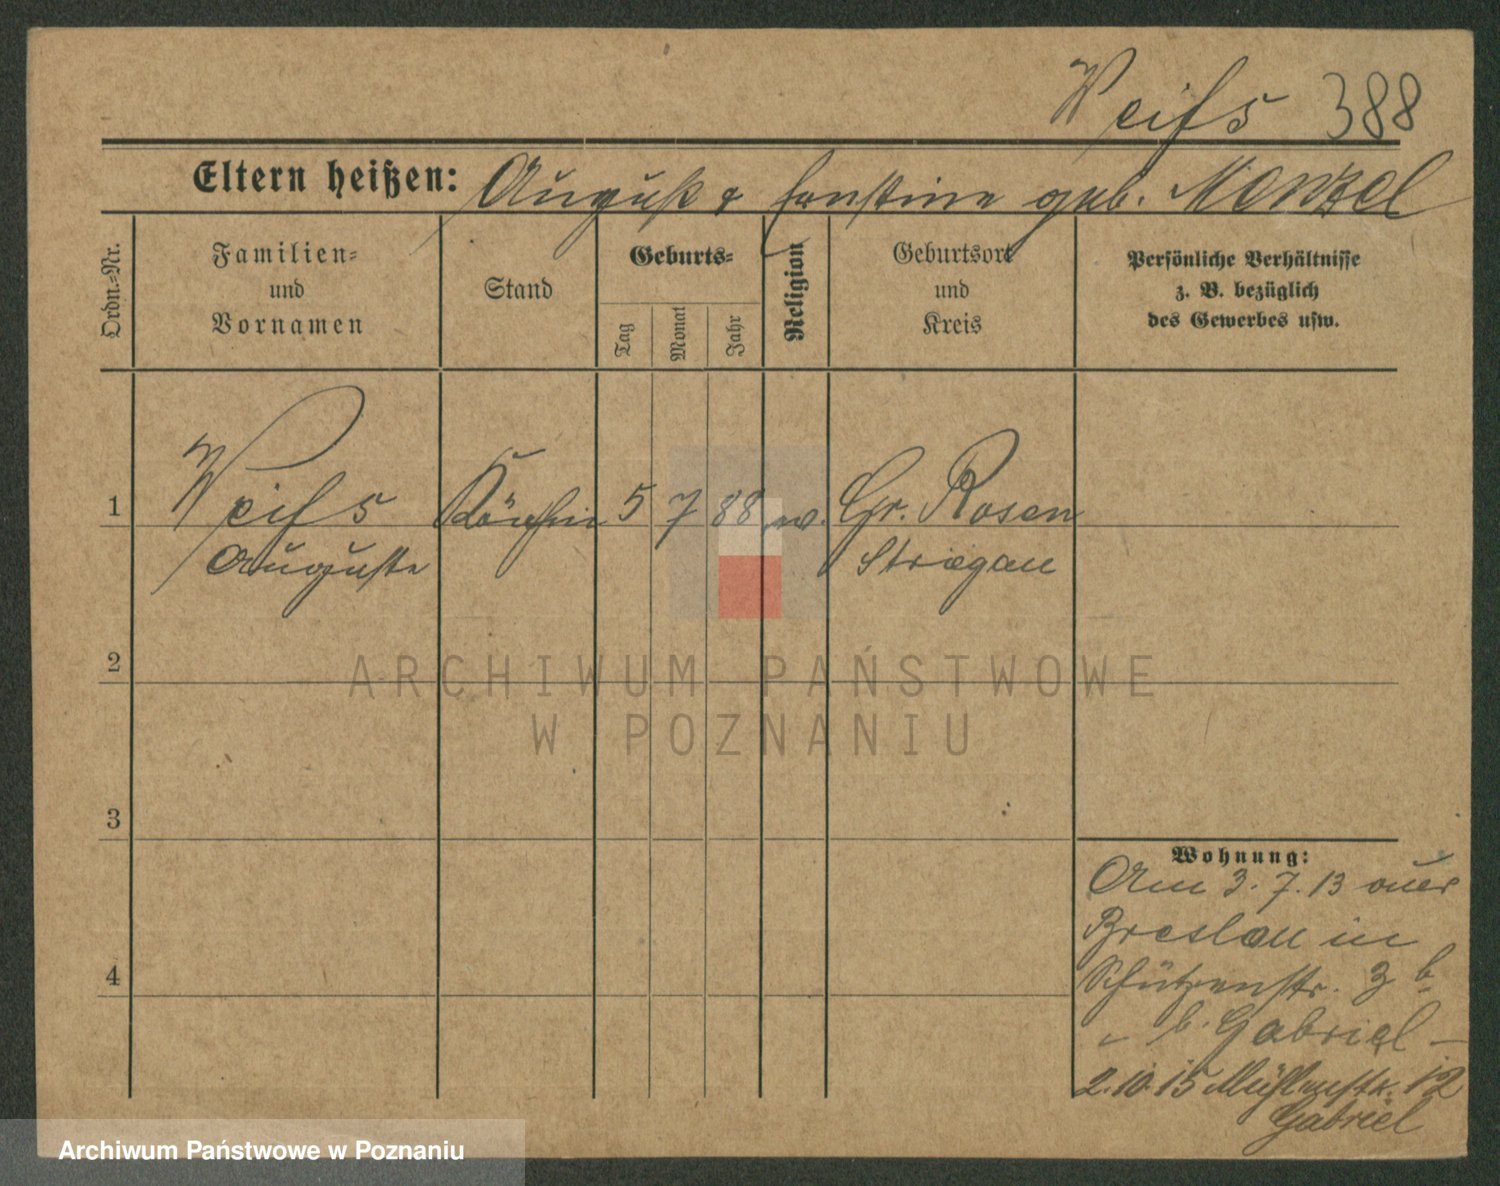 Weifs 388
Eltern heißen: August & Faustine geb. Menzel
Ordn.-Nr.
Familien-
und
Vornamen
Stand
Geburts-
Tag
Monat
Jahr
Religion
Geburtsort
und
Kreis
Persönliche Verhältnisse
z. B. bezüglich
des Gewerbes usw.
1
Weifs
Auguste
Köchin
5
7
88
ev.
Gr. Rosen
Striegau
2
ARCHIWUM PAŃSTWOWE
W POZNANIU
3
Wohnung:
Am 3. 7. 13 aus
Breslau in
Schützenstr. 3 b
- b. Gabriel -
4
2.10.15 Mühlenstr. 12
Gabriel
Archiwum Państwowe w Poznaniu